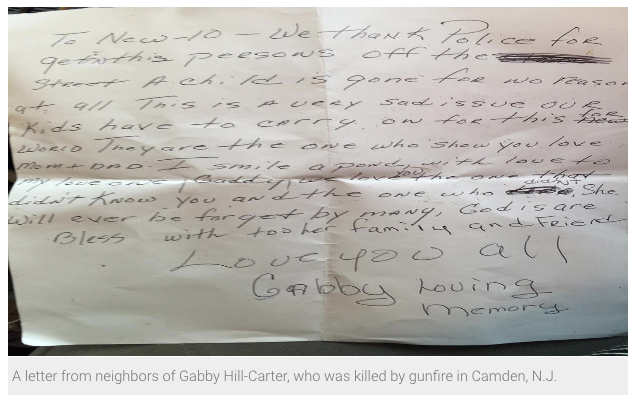 To New-10 - We thank Police for
getin this persons off the
street A child is gone for no reason
at all This is a very sad issue our
kids have to carry on for this
World They are the one who show you love
mom + DAD I smile a pond, with love to
my love one, Gabby, we love you the one that
didn't know you and the one who didn't, She
will ever be forget by many, God is are
Bless with too her family and Friend
Love you all
Gabby Loving
memory
A letter from neighbors of Gabby Hill-Carter, who was killed by gunfire in Camden, N.J.